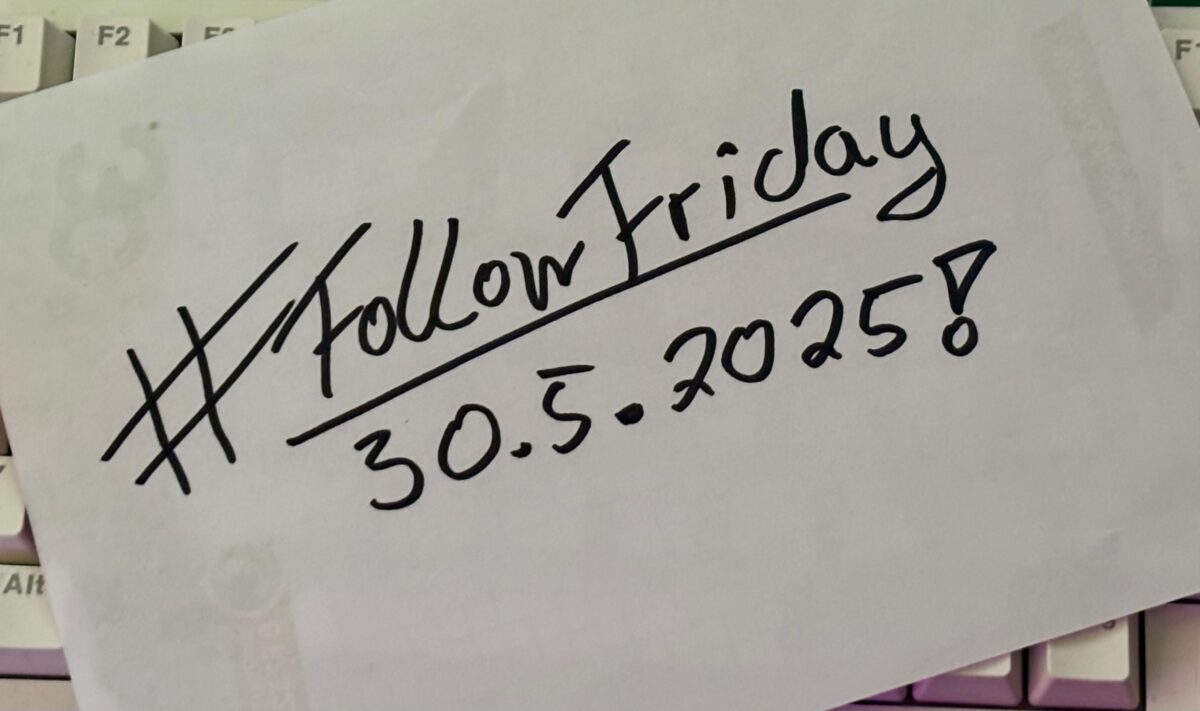 F1 F2 F3
#FollowFriday
30.5.2025!
Alt